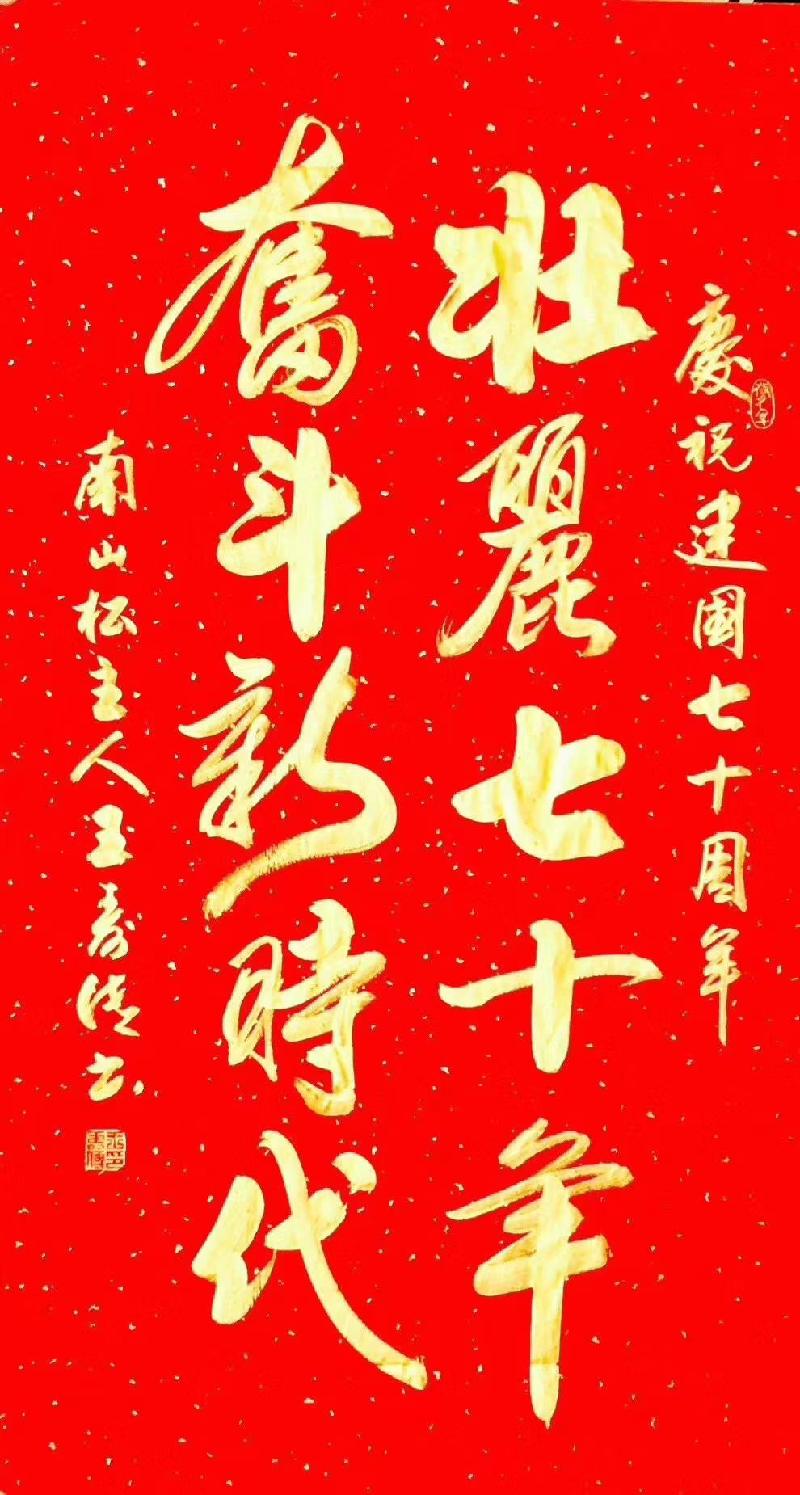 慶祝建國七十周年
壯麗七十年
奮斗新時代
南山松主人王壽清書